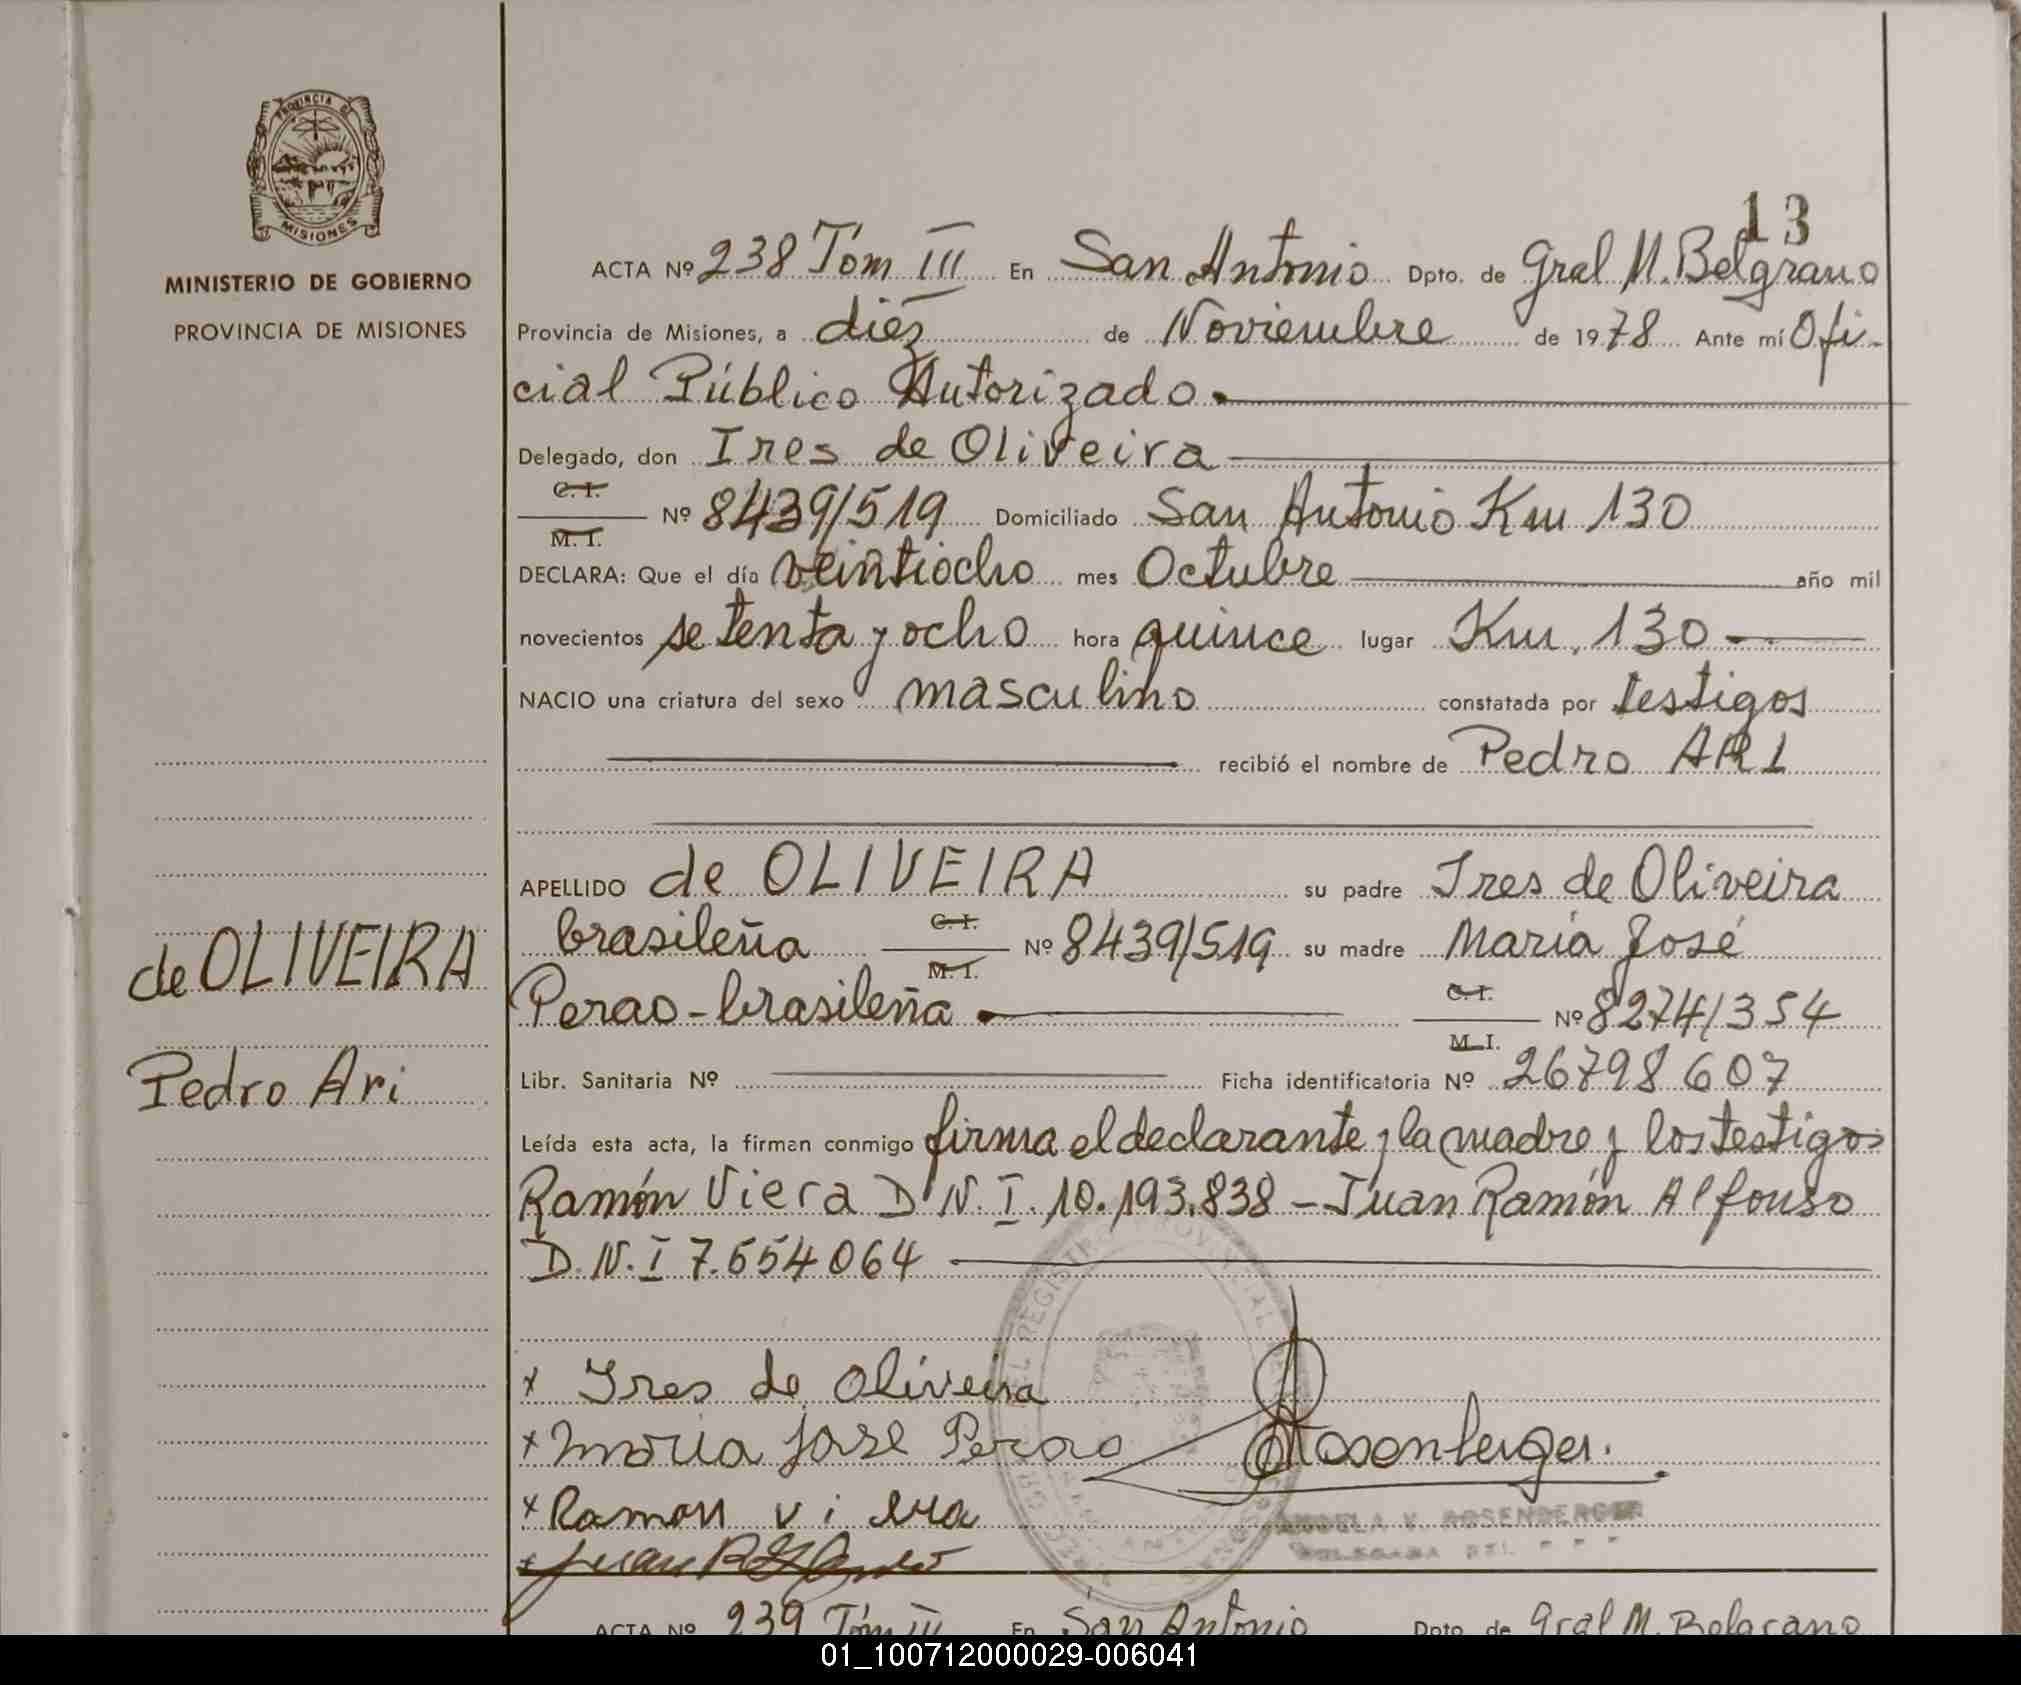 PROVINCIA DE
MISIONES
MINISTERIO DE GOBIERNO
PROVINCIA DE MISIONES
de OLIVEIRA
Pedro Ari
13
ACTA Nº 238 Tóm III En San Antonio Dpto. de Gral M. Belgrano
Provincia de Misiones, a diéz de Noviembre de 1978 Ante mí Ofi-
cial Público Autorizado.
Delegado, don Ires de Oliveira
C. I.
Nº 8439/519 Domiciliado San Antonio Km 130
M. I.
DECLARA: Que el día veintiocho mes Octubre año mil
novecientos setenta y ocho hora quince lugar Km. 130
NACIO una criatura del sexo masculino constatada por testigos
recibió el nombre de Pedro ARI
APELLIDO de OLIVEIRA su padre Ires de Oliveira
brasileña C. I. Nº 8439/519 su madre María José
M. I.
Perao - brasileña C. I. Nº 8274/354
M. I.
Libr. Sanitaria Nº Ficha identificatoria Nº 26798607
Leída esta acta, la firman conmigo firma el declarante y la madre y los testigos
Ramón Viera D N. I. 10.193.838 - Juan Ramón Alfonso
D. N. I 7.654064
x Ires de Oliveira
x Maria Jose Perao
Rosenberger.
x Ramon viera
ANGELA V. ROSENBERGER
ACTA Nº 239 Tóm III En San Antonio Dpto. de Gral M. Belgrano
01_100712000029-006041